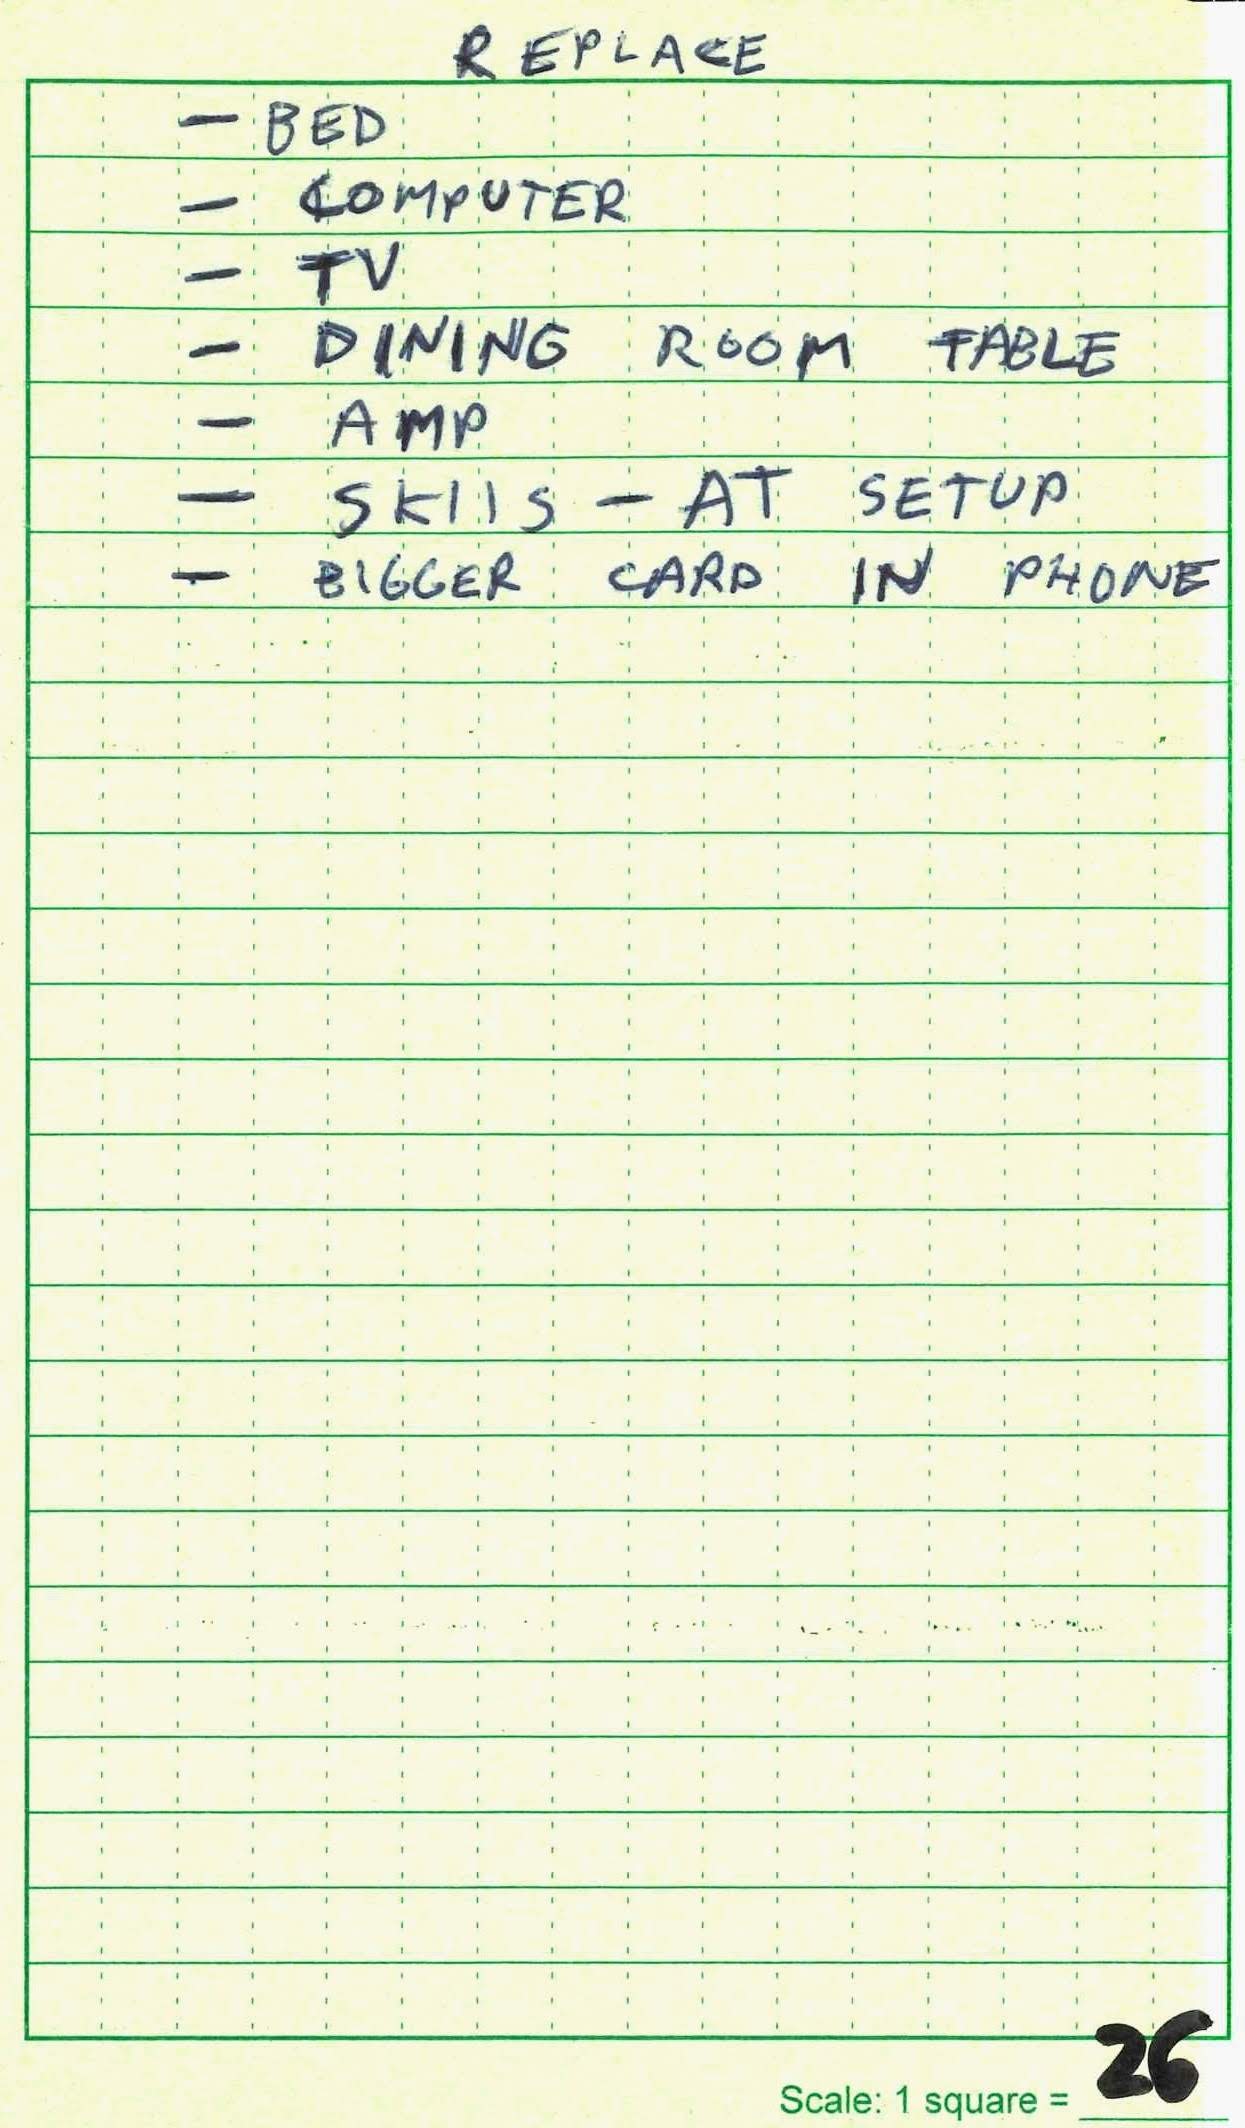 REPLACE
- BED
- COMPUTER
- TV
- DINING ROOM TABLE
- AMP
- SKIIS - AT SETUP
- BIGGER CARD IN PHONE
26
Scale: 1 square =